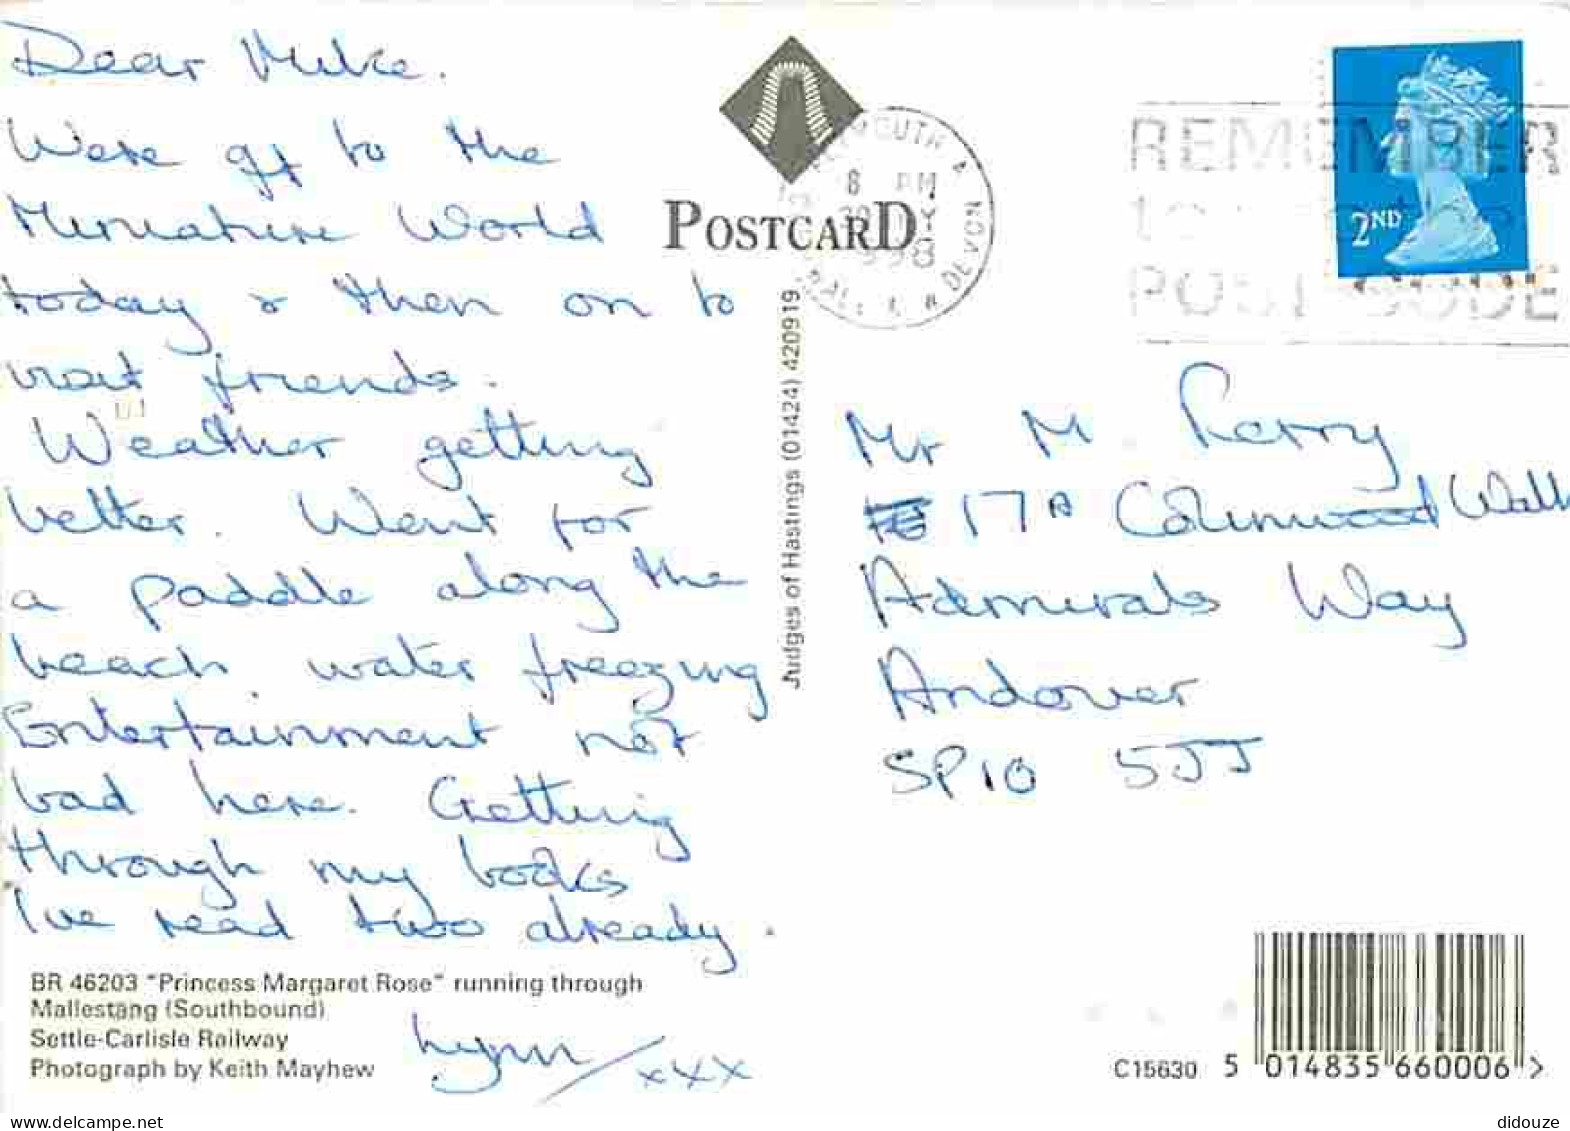 Dear Mike.
Were off to the
Miniature World
today & then on to
visit friends.
Weather getting
better. Went for
a paddle along the
beach water freezing
Entertainment not
bad here. Getting
through my books
I've read two already.
Lynn
xxx
BR 46203 "Princess Margaret Rose" running through
Mallestang (Southbound)
Settle-Carlisle Railway
Photograph by Keith Mayhew
POSTCARD
Judges of Hastings (01424) 420919
MOUTH &
8 PM
DEVON
REMEMBER
POST CODE
2ND
Mr M. Perry
17A Walk
Admirals Way
Andover
SP10 5JJ
C15630
5 014835 660006 >
didouze